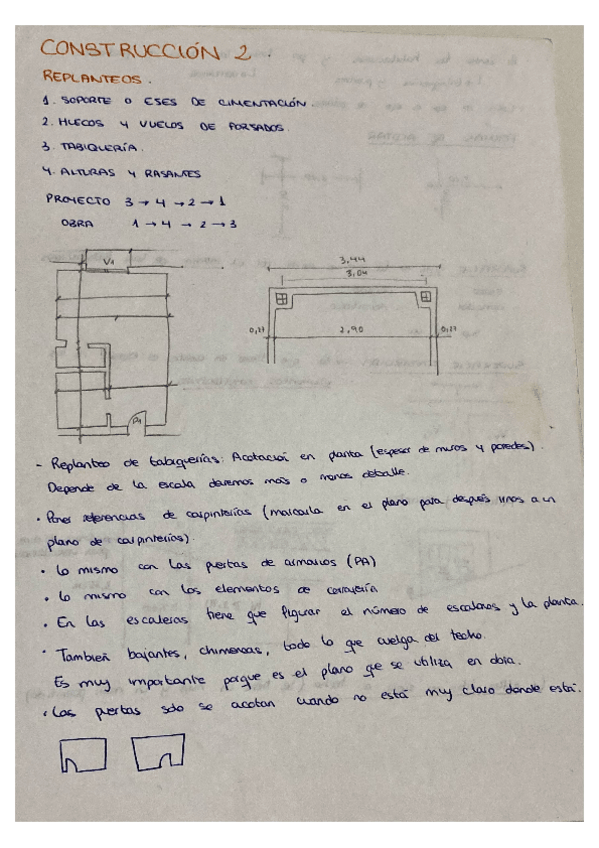 CONSTRUCCIÓN 2.
REPLANTEOS.
1. SOPORTE O ESES DE CIMENTACIÓN.
2. HUECOS Y VUELOS DE FORSADOS.
3. TABIQUERÍA.
4. ALTURAS Y RASANTES
PROYECTO 3 → 4 → 2 → 1
OBRA 1 → 4 → 2 → 3
V1
3,44
3,04
0,27 2,90 0,27
P1
- Replanteo de tabiquerías: Acotación en planta (espesor de muros y paredes).
Depende de la escala daremos más o menos detalle.
· Poner referencias de carpinterías (marcarla en el plano para después irnos a un
plano de carpinterías).
· Lo mismo con las puertas de armarios (PA)
· Lo mismo con los elementos de cerrajería
· En las escaleras tiene que figurar el número de escalones y la planta.
· También bajantes, chimeneas, todo lo que cuelga del techo.
Es muy importante porque es el plano que se utiliza en obra.
· Las puertas sólo se acotan cuando no está muy claro dónde está.